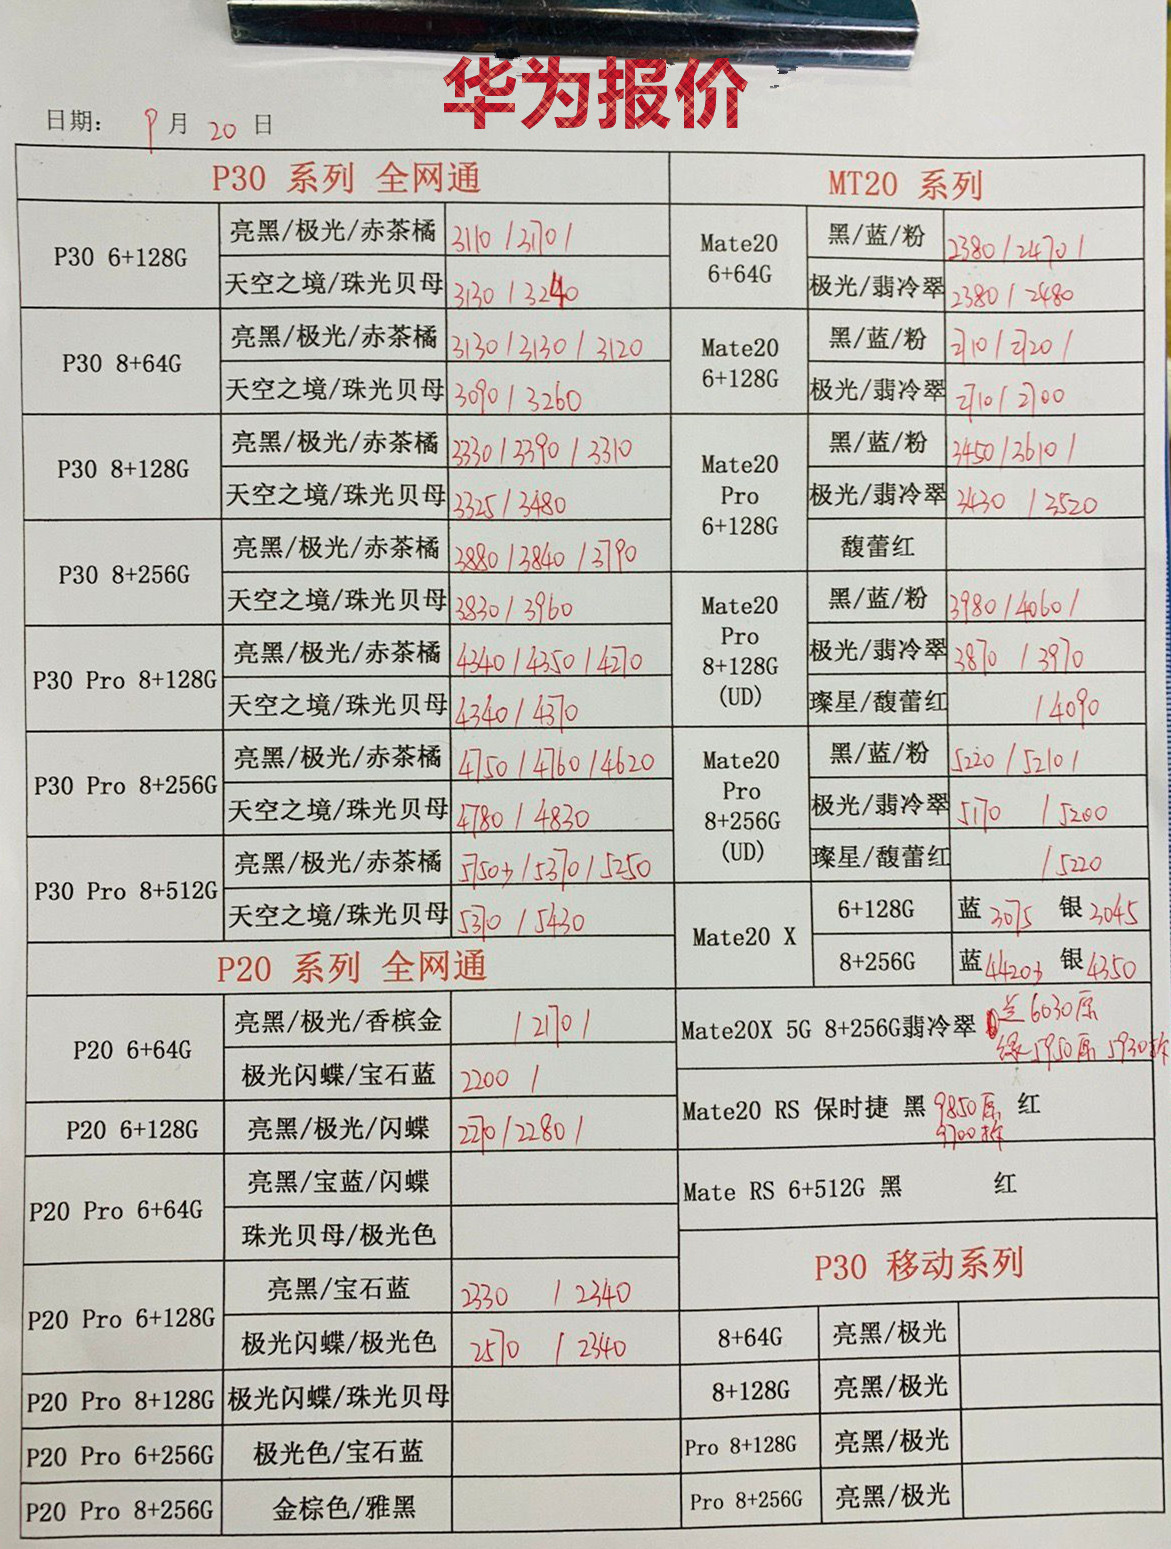 华为报价
日期: 9月20日
P30 系列 全网通
P30 6+128G
亮黑/极光/赤茶橘 3110/3170/
天空之境/珠光贝母 3130/3240
P30 8+64G
亮黑/极光/赤茶橘 3130/3130/3120
天空之境/珠光贝母 3090/3260
P30 8+128G
亮黑/极光/赤茶橘 3330/3390/3310
天空之境/珠光贝母 3325/3480
P30 8+256G
亮黑/极光/赤茶橘 3880/3840/3790
天空之境/珠光贝母 3830/3960
P30 Pro 8+128G
亮黑/极光/赤茶橘 4340/4350/4270
天空之境/珠光贝母 4340/4370
P30 Pro 8+256G
亮黑/极光/赤茶橘 4750/4760/4620
天空之境/珠光贝母 4780/4830
P30 Pro 8+512G
亮黑/极光/赤茶橘 /5370/5250
天空之境/珠光贝母 5370/5430
P20 系列 全网通
P20 6+64G
亮黑/极光/香槟金 /2170/
极光闪蝶/宝石蓝 2200 /
P20 6+128G
亮黑/极光/闪蝶 2270/2280/
P20 Pro 6+64G
亮黑/宝蓝/闪蝶
珠光贝母/极光色
P20 Pro 6+128G
亮黑/宝石蓝 2330 /2340
极光闪蝶/极光色 2570 /2340
P20 Pro 8+128G 极光闪蝶/珠光贝母
P20 Pro 6+256G 极光色/宝石蓝
P20 Pro 8+256G 金棕色/雅黑
MT20 系列
Mate20
6+64G
黑/蓝/粉 2380/2470/
极光/翡冷翠 2380/2480
Mate20
6+128G
黑/蓝/粉 2710/2720/
极光/翡冷翠 2710/2700
Mate20
Pro
6+128G
黑/蓝/粉 3450/3610/
极光/翡冷翠 3430 /3520
馥蕾红
Mate20
Pro
8+128G
(UD)
黑/蓝/粉 3980/4060/
极光/翡冷翠 3870 /3970
璨星/馥蕾红 /4090
Mate20
Pro
8+256G
(UD)
黑/蓝/粉 5220/5210/
极光/翡冷翠 5170 /5200
璨星/馥蕾红 /5220
Mate20 X
6+128G 蓝 3075 银 3045
8+256G 蓝 4420 银 4350
Mate20X 5G 8+256G翡冷翠 兰6030原
绿5950原 5930拆
Mate20 RS 保时捷 黑 9850原 红
9700拆
Mate RS 6+512G 黑 红
P30 移动系列
8+64G 亮黑/极光
8+128G 亮黑/极光
Pro 8+128G 亮黑/极光
Pro 8+256G 亮黑/极光